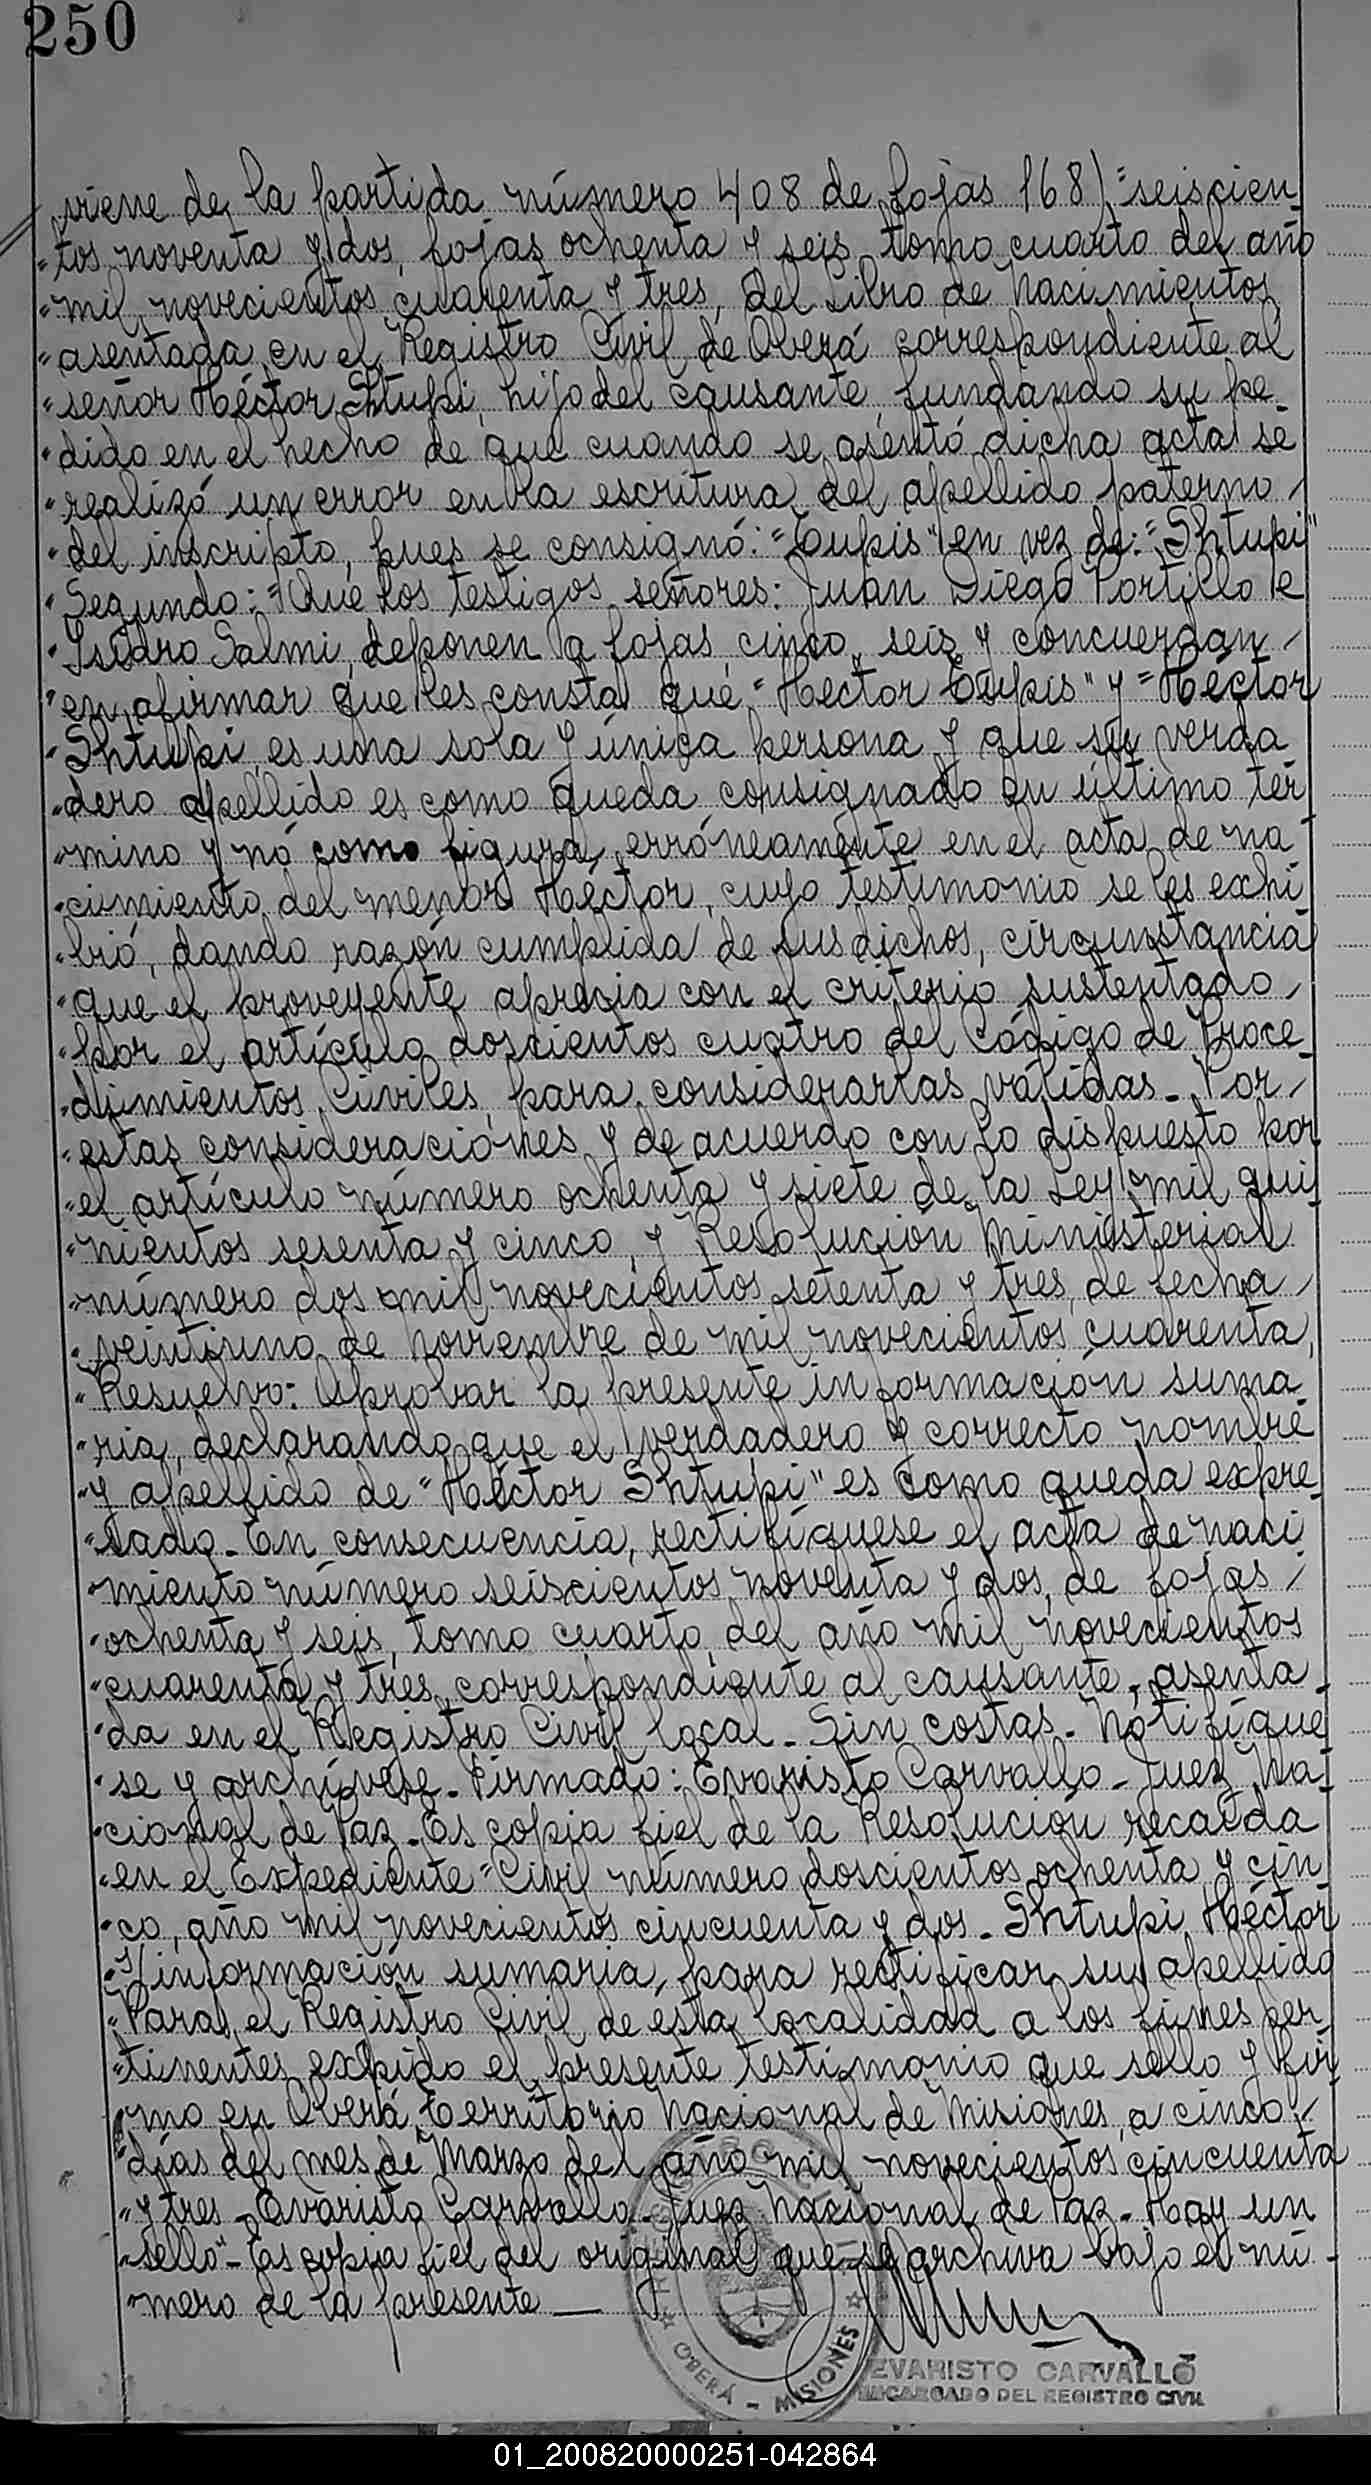 250
viene de la partida número 408 de fojas 168) "seiscien
"tos noventa y dos, fojas ochenta y seis, tomo cuarto del año
"mil novecientos cuarenta y tres, del Libro de Nacimientos,
"asentada en el Registro Civil de Oberá correspondiente al
"señor Héctor Shtupi, hijo del causante, fundando su pe-
"dido en el hecho de que cuando se asentó dicha acta se
"realizó un error en la escritura del apellido paterno
"del inscripto, pues se consignó: "Tupis" en vez de: "Shtupi"
"Segundo: "Que los testigos señores: Juan Diego Portillo e
"Isidro Salmi, deponen a fojas cinco, seis y concuerdan
"en afirmar que les consta que "Héctor Tupis" y "Héctor
"Shtupi es una sola y única persona y que su verda
"dero apellido es como queda consignado en último tér
"mino y nó como figura erróneamente en el acta de na
"cimiento del menor Héctor, cuyo testimonio se les exhi
"bió, dando razón cumplida de sus dichos, circunstancia
"que el proveyente aprecia con el criterio sustentado
"por el artículo doscientos cuatro del Código de Proce-
"dimientos Civiles, para considerarlas válidas.- Por
"estas consideraciones y de acuerdo con lo dispuesto por
"el artículo número ochenta y siete de la Ley mil qui
"nientos sesenta y cinco, y Resolución Ministerial
"número dos mil novecientos setenta y tres, de fecha
"veintiuno de noviembre de mil novecientos cuarenta,
"Resuelvo: Aprobar la presente información suma
"ria, declarando que el verdadero y correcto nombre
"y apellido de "Héctor Shtupi" es como queda expre-
"sado.- En consecuencia, rectifíquese el acta de naci
"miento número seiscientos noventa y dos, de fojas
"ochenta y seis, tomo cuarto, del año mil novecientos
"cuarenta y tres, correspondiente al causante, asenta-
"da en el Registro Civil local.- Sin costas.- Notifíque
"se y archívese.- Firmado: Evaristo Carvallo - Juez Na-
"cional de Paz.- Es copia fiel de la Resolución recaída
"en el Expediente "Civil número doscientos ochenta y cin
"co, año mil novecientos cincuenta y dos.- Shtupi Héctor
"s/información sumaria, para rectificar su apellido
"Para el Registro Civil de ésta localidad a los fines per
"tinentes expido el presente testimonio que sello y fir
"mo en Oberá, Territorio Nacional de Misiones, a cinco
"días del mes de Marzo del año mil novecientos cincuenta
"y tres - Evaristo Carvallo - Juez Nacional de Paz - Hay un
"sello".- Es copia fiel del original que se archiva bajo el nú-
"mero de la presente
OBERÁ - MISIONES
EVARISTO CARVALLO
ENCARGADO DEL REGISTRO CIVIL
01_200820000251-042864